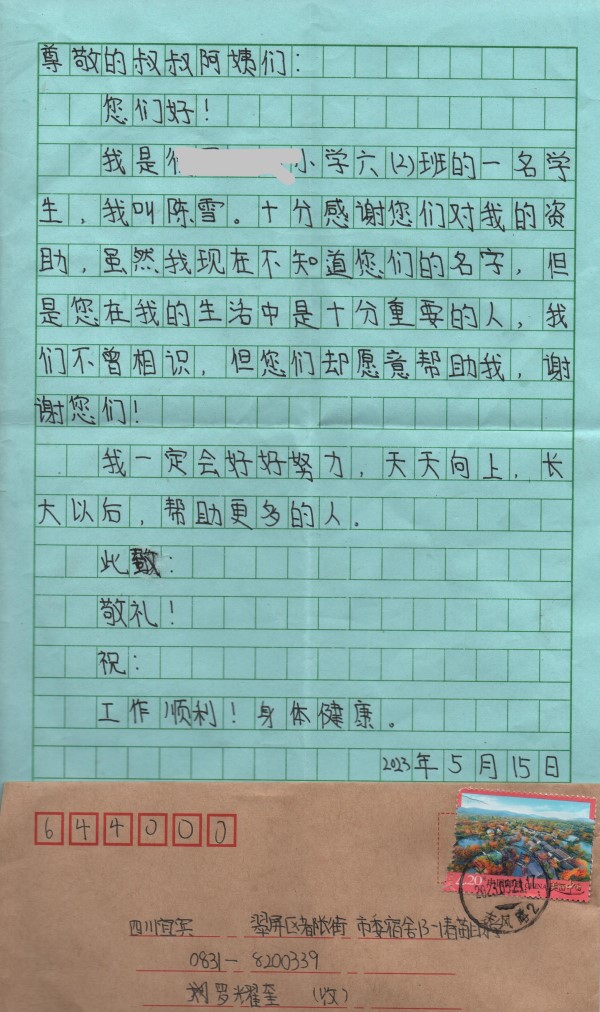 尊敬的叔叔阿姨们：
您们好！
我是 小学六(2)班的一名学
生，我叫陈雪。十分感谢您们对我的资
助，虽然我现在不知道您们的名字，但
是您在我的生活中是十分重要的人，我
们不曾相识，但您们却愿意帮助我，谢
谢您们！
我一定会好好努力，天天向上，长
大以后，帮助更多的人。
此致：
敬礼！
祝：
工作顺利！身体健康。
2023年5月15日
644000
四川宜宾 翠屏区 街 市委宿舍13-1
0831-8200339
罗耀奎 (收)